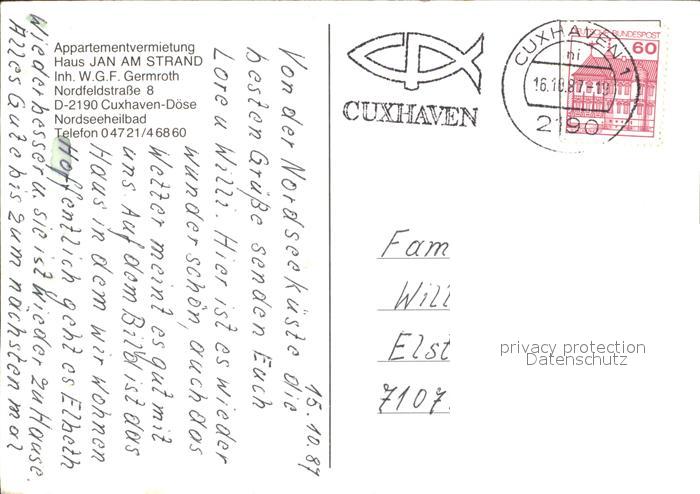 Appartementvermietung
Haus JAN AM STRAND
Inh. W.G.F. Germroth
Nordfeldstraße 8
D-2190 Cuxhaven-Döse
Nordseeheilbad
Telefon 0 47 21/4 68 60
15.10.87
Von der Nordseeküste die
besten Grüße senden Euch
Lore u Willi. Hier ist es wieder
wunderschön, auch das
Wetter meint es gut mit
uns. Auf dem Bild ist das
Haus in dem wir wohnen
Hoffentlich geht es Elbeth
wieder besser u. sie ist wieder zu Hause.
Alles Gute bis zum nächsten mal
CUXHAVEN
CUXHAVEN 1
ni
16.10.87-19
2190
DEUTSCHE BUNDESPOST
60
Fam
Will
Elst
7107
privacy protection
Datenschutz